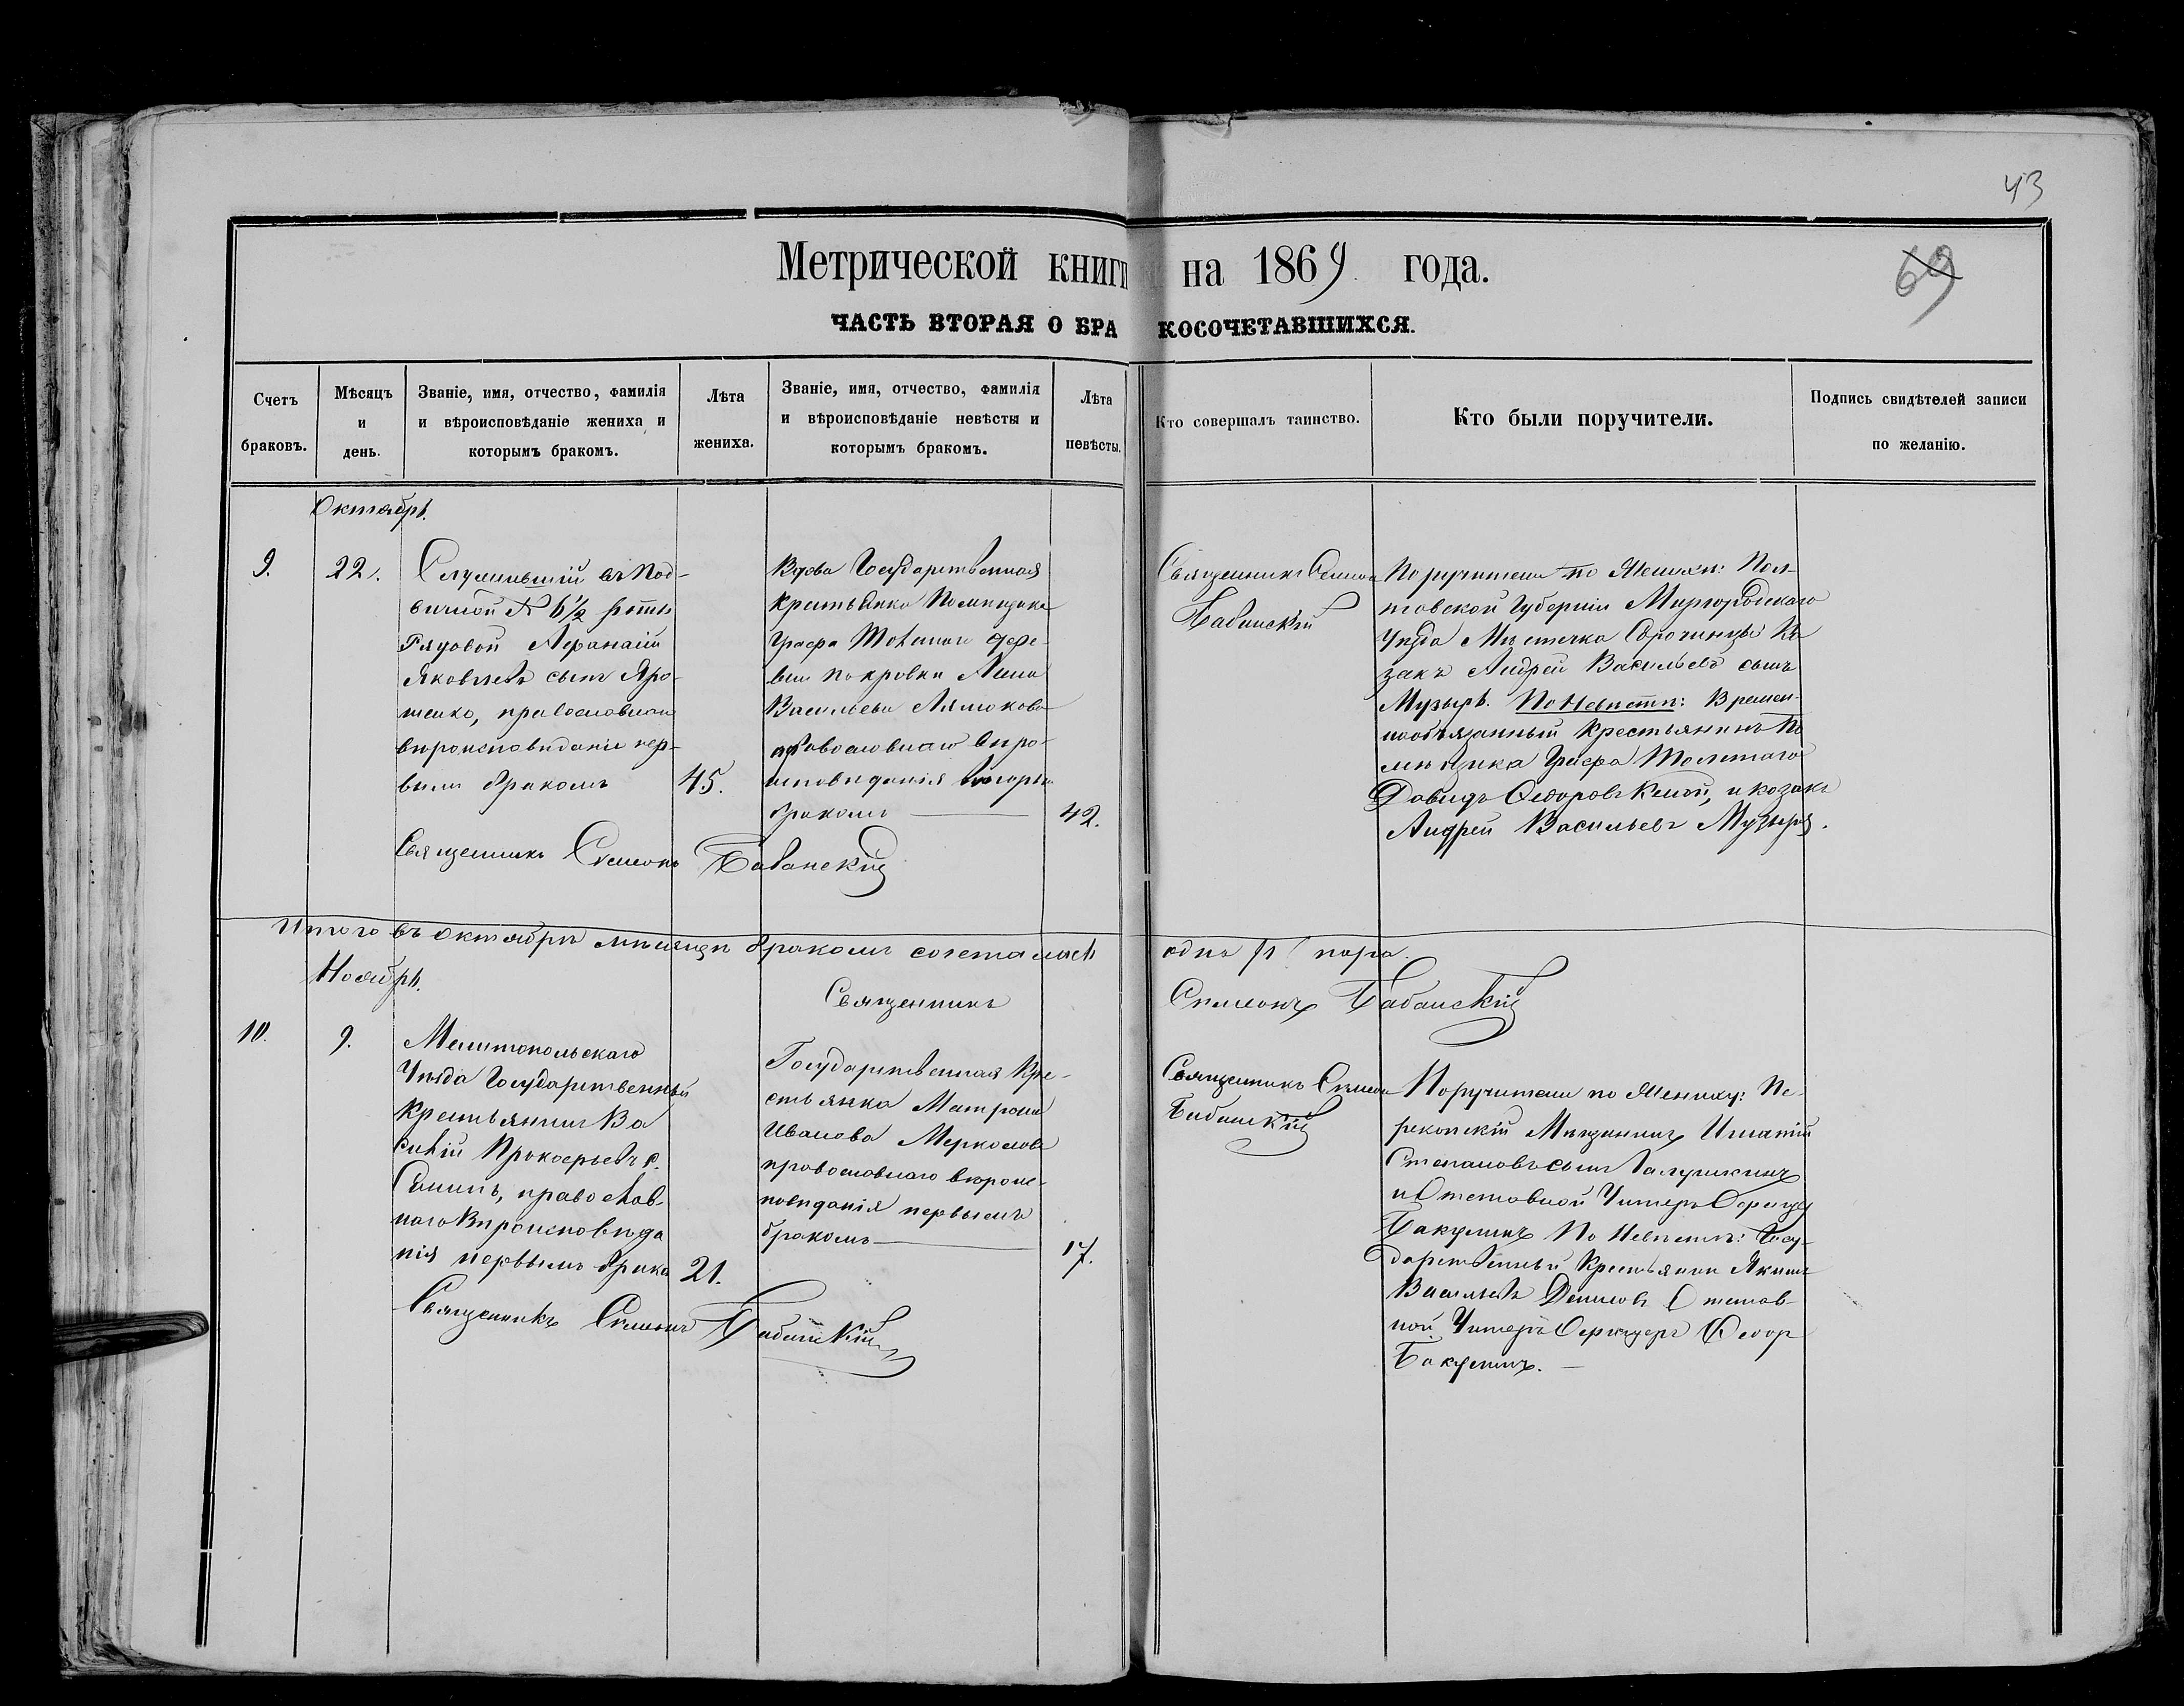 43
69
Метрической книги на 1869 года.
ЧАСТЬ ВТОРАЯ О БРАКОСОЧЕТАВШИХСЯ.
Счетъ
браковъ.
Мѣсяцъ
и
день.
Званіе, имя, отчество, фамилія
и вѣроисповѣданіе жениха и
которымъ бракомъ.
Лѣта
жениха.
Званіе, имя, отчество, фамилія
и вѣроисповѣданіе невѣсты и
которымъ бракомъ.
Лѣта
невѣсты.
Кто совершалъ таинство.
Кто были поручители.
Подпись свидѣтелей записи
по желанію.
Октябрь.
9.
22.
Служившій въ Под-
вижной N 6½
Рядовой Афанасій
Яковлевъ сынъ Яро-
шенко, православнаго
вѣроисповѣданіе пер-
вымъ бракомъ
45.
Вдова Государственная
крестьянка Помещика
Графа
Покровки Анна
Васильева
православнаго вѣро-
исповѣданія вторымъ
бракомъ
42.
Священникъ Симеонъ
Бабанскій
Поручители по Женихѣ: Пол-
тавской Губерніи Миргородскаго
Уѣзда Мѣстечка Сорочинцы Ка
закъ Андрей Васильевъ сынъ
Музырь. По Невѣстѣ: Времен-
нообязанный крестьянинъ По
мѣщика Графа Толстаго
Давидъ Федоровъ, и козакъ
Андрей Васильевъ Музыря.
Священникъ Симеонъ Бабанскій
Итого въ октябрѣ мѣсяцѣ бракомъ сочеталась одна /1/ пара.
Ноябрь.
Священникъ Симеонъ Бабанскій
10.
9.
Мелитопольскаго
Уѣзда Государственный
крестьянинъ Ва
силій Прокофьевъ с.
православ-
наго Вѣроисповѣда
нія первымъ брака
21.
Государственная Кре-
стьянка Матрона
Иванова Мерколова
православнаго вѣроис-
повѣданія первымъ
бракомъ
17.
Священникъ Симеонъ
Бабанскій
Поручители по Жениху: Пе-
рекопскій Мѣщанинъ Игнатій
Степановъ сынъ Галушкинъ
и Отставной Унтеръ Офицеръ
Бакулинъ По Невѣстѣ: Госу-
дарственный Крестьянинъ Якимъ
Васильевъ Денисовъ Отстав-
ной Унтеръ Офицеръ Федор
Бакулинъ.
Священникъ Симеонъ Бабанскій